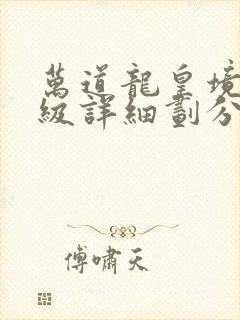 萬道龍皇境
級詳細劃分
傅嘯天